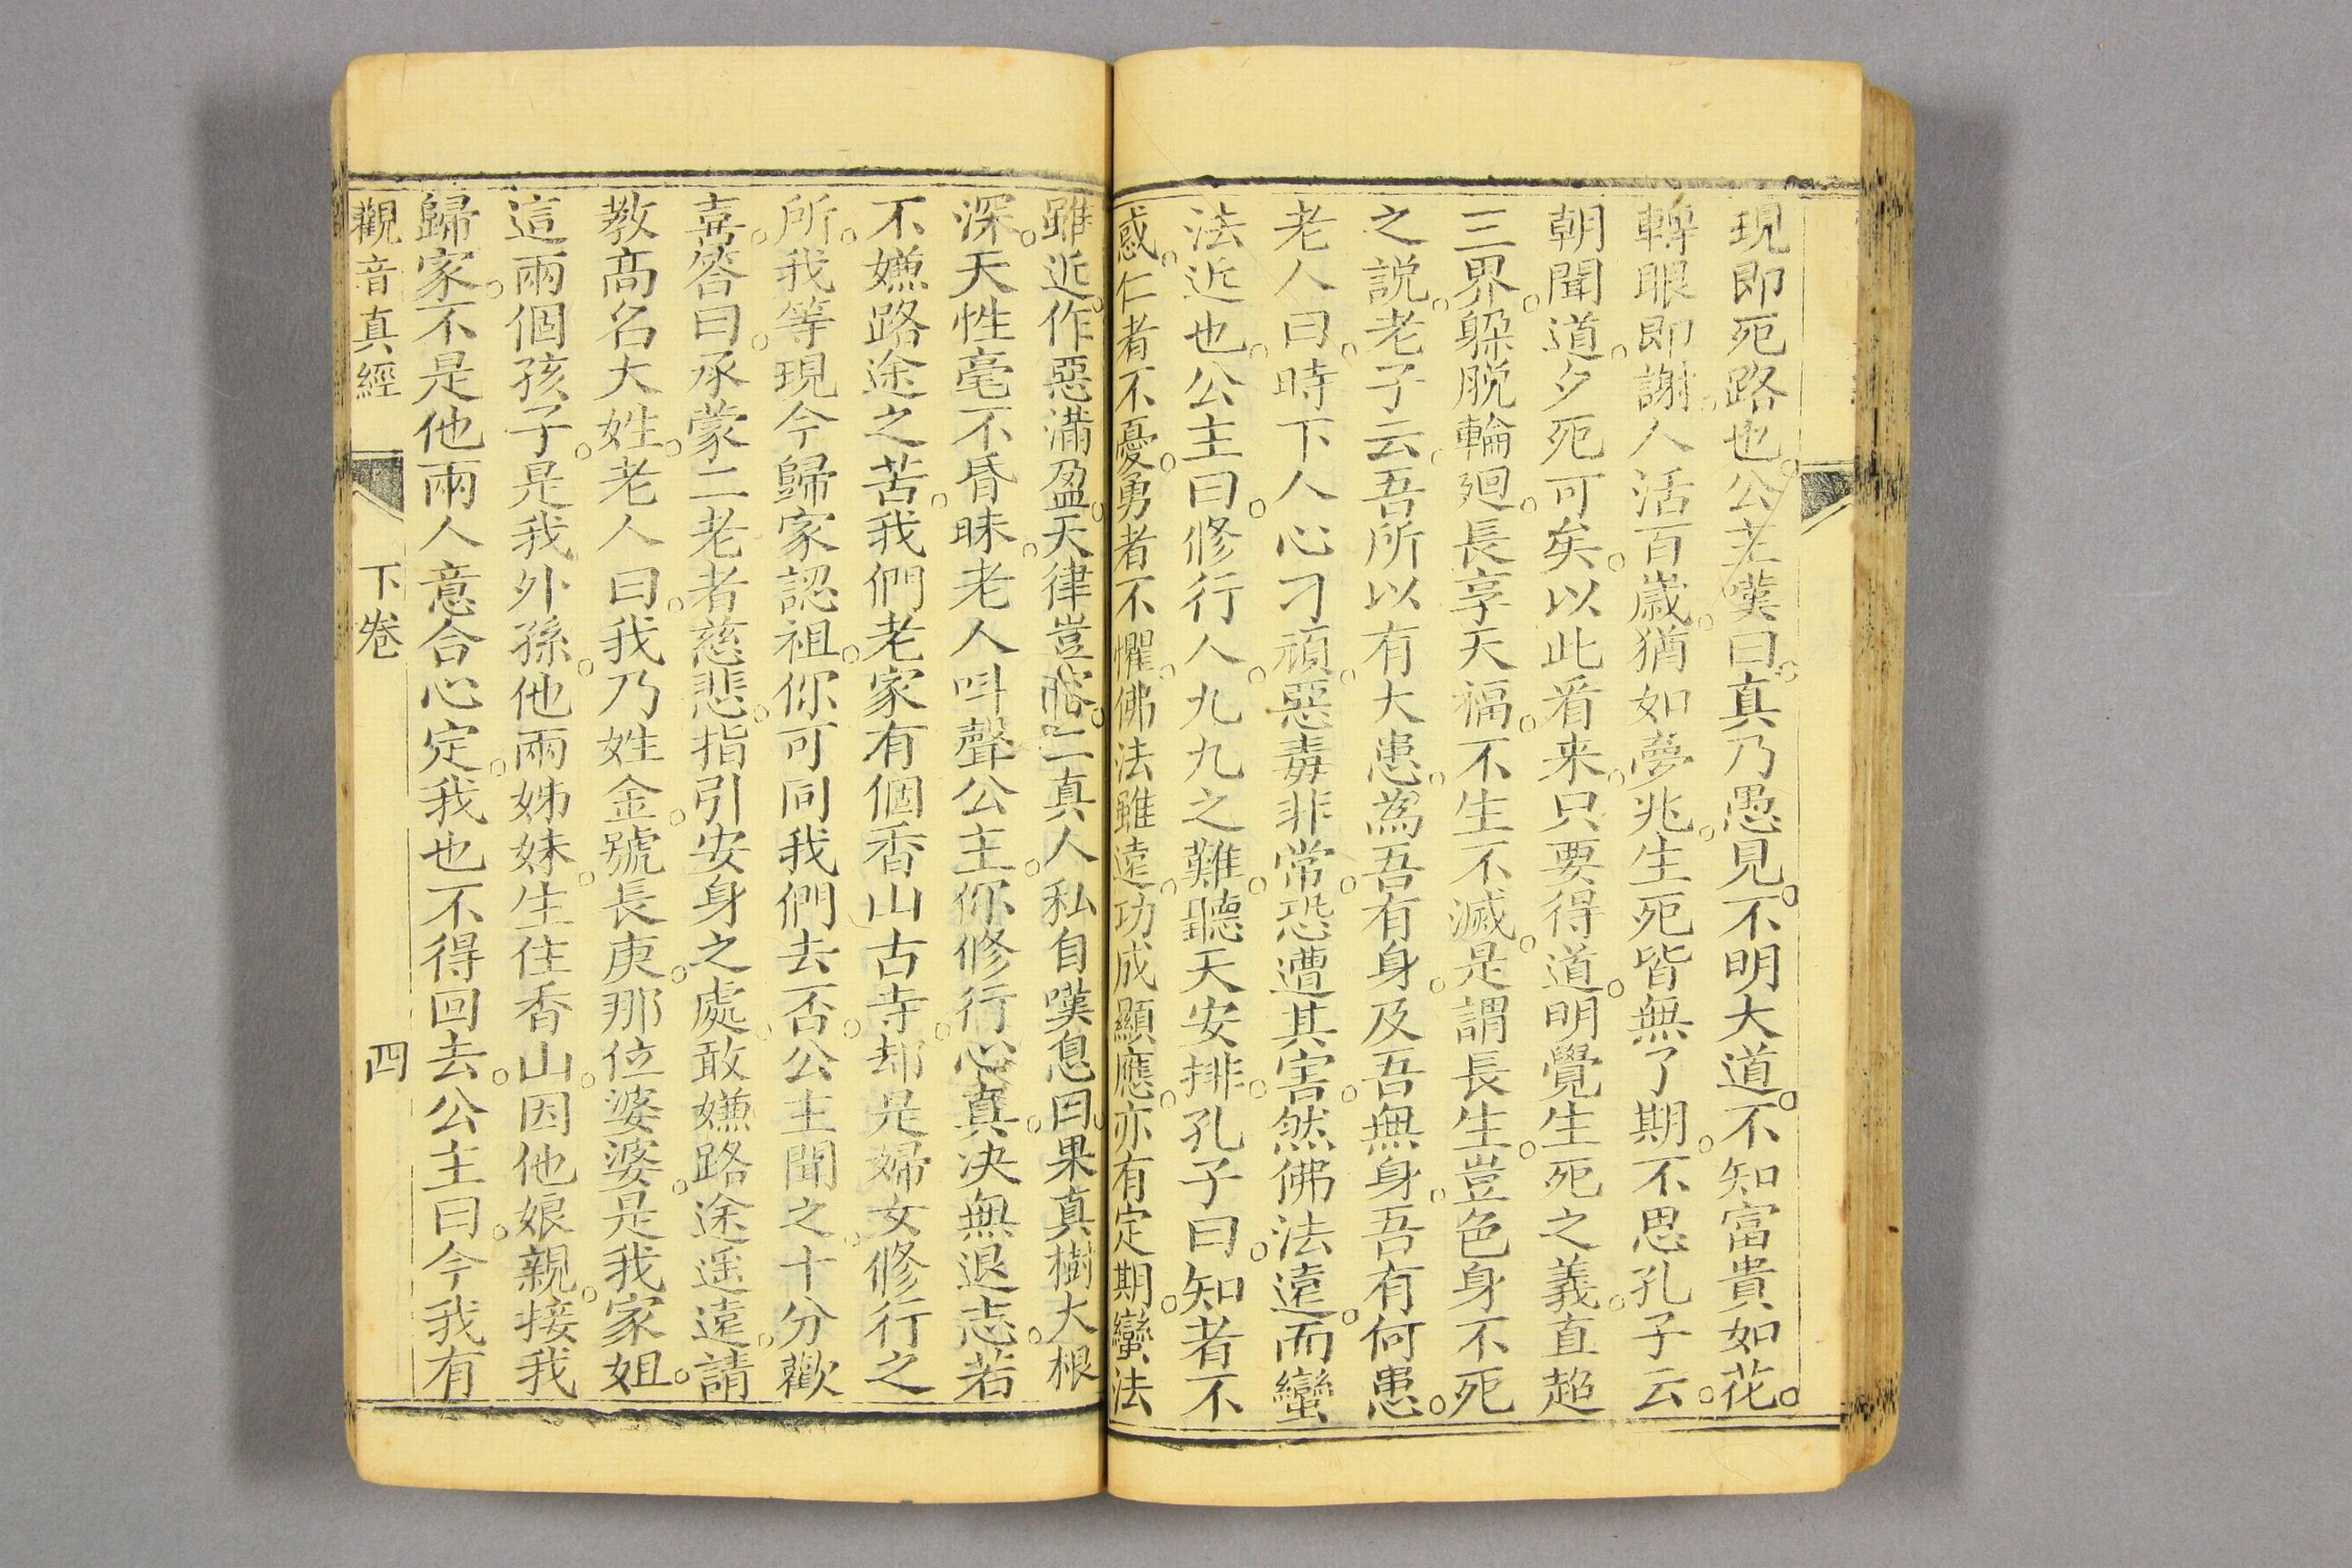 現即死路也。公主嘆曰。真乃愚見。不明大道。不知富貴如花。
轉眼即謝。人活百歲。猶如夢兆。生死皆無了期。不思孔子云。
朝聞道。夕死可矣。以此看来。只要得道。明覺生死之義。直超
三界。躲脫輪廻。長享天福。不生不滅。是謂長生。豈色身不死
之說。老子云。吾所以有大患。為吾有身。及吾無身。吾有何患。
老人曰。時下人心刁頑。惡毒非常。恐遭其害。然佛法遠。而蠻
法近也。公主曰。修行人。九九之難。聽天安排。孔子曰。知者不
惑。仁者不憂。勇者不懼。佛法雖遠。功成顯應。亦有定期。蠻法
雖近。作惡滿盈。天律豈容。二真人私自嘆息曰。果真樹大根
深。天性毫不昏昧。老人呌聲公主。你修行心真。决無退志。若
不嫌路途之苦。我們老家有個香山古寺。却是婦女修行之
所。我等現今歸家認祖。你可同我們去否。公主聞之。十分歡
喜。答曰。承蒙二老者慈悲。指引安身之處。敢嫌路途遥遠。請
教髙名大姓。老人曰。我乃姓金。號長庚。那位婆婆。是我家姐。
這兩個孩子。是我外孫。他兩姊妹。生住香山。因他娘親。接我
歸家。不是他兩人意合心定。我也不得回去。公主曰。今我有
觀音真經 下卷 四